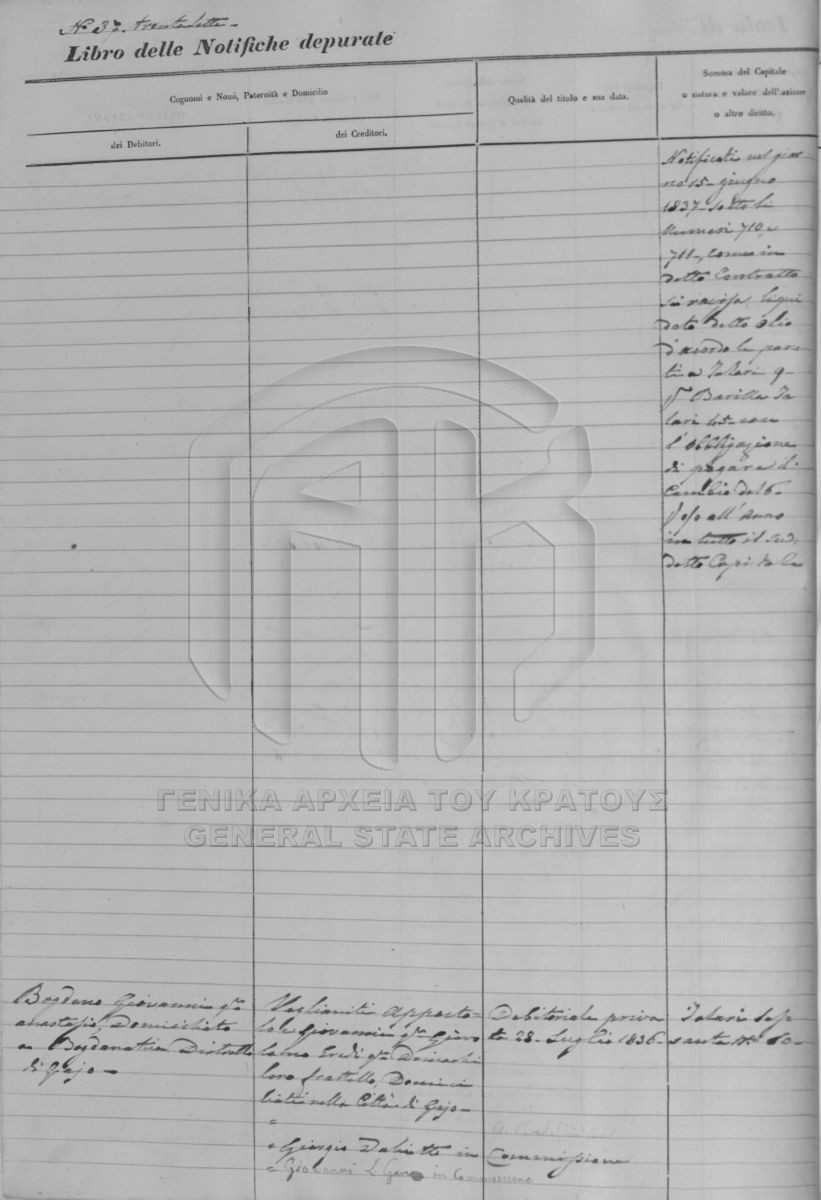 No 37. trentasette
Libro delle Notifiche depurate
Cognomi e Nomi, Paternità e Domicilio
dei Debitori.
dei Creditori.
Qualità del titolo e sua data.
Somma del Capitale
o natura e valore dell'azione
o altro diritto.
Notificati nel gior
no 15 giugno
1837 sotto li
Numeri 710, e
711, come in
detto Contratto
liqui
dato detto olio
d'acordo le par
ti a Talari 9
Barilla Ta
lari 45 con
l'obbligazione
di pagare il
Cambio del 6
p o/o all'Anno
in tutto il sud
detto Capitale
ΓΕΝΙΚΑ ΑΡΧΕΙΑ ΤΟΥ ΚΡΑΤΟΥΣ
GENERAL STATE ARCHIVES
Bogdano Giovanni qm
Anastasio, Domiciliato
a Bogdanatica Distretto
di Gajo
Vaglianiti Apposto
lo e Giovanni qm
Eredi qm
loro fratello, Domici
liati nella Città di Gajo
Giorgio in Commissione
Giovanni in Commissione
Debitoriale priva
ta 28 Luglio 1836
Talari ses
santa No 60